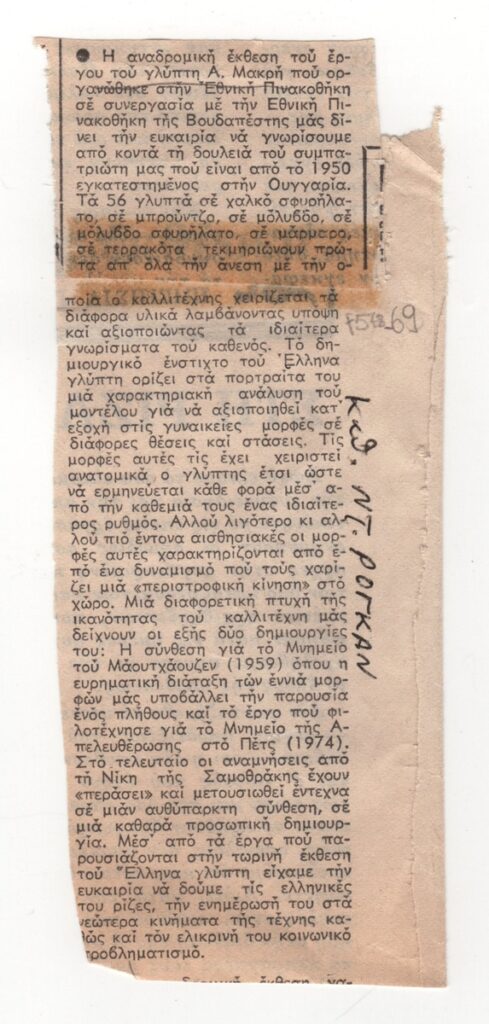 ● Η αναδρομική έκθεση τοῦ ἔρ-
γου τοῦ γλύπτη Α. Μακρῆ ποὺ ορ-
γανώθηκε στὴν Ἐθνικὴ Πινακοθήκη
σὲ συνεργασία μὲ τὴν Ἐθνικὴ Πι-
νακοθήκη τῆς Βουδαπέστης μᾶς δί-
νει τὴν ευκαιρία νὰ γνωρίσουμε
από κοντὰ τὴ δουλειὰ τοῦ συμπα-
τριώτη μας ποὺ εἶναι από τὸ 1950
εγκατεστημένος στὴν Ουγγαρία.
Τὰ 56 γλυπτὰ σὲ χαλκὸ σφυρήλα-
το, σὲ μπροῦντζο, σὲ μόλυβδο, σὲ
μόλυβδο σφυρήλατο, σὲ μάρμαρο,
σὲ τερρακότα τεκμηριώνουν πρώ-
τα απ' ὅλα τὴν ἄνεση μὲ τὴν ο-
ποία ο καλλιτέχνης χειρίζεται τὰ
διάφορα υλικὰ λαμβάνοντας υπόψη
καὶ αξιοποιώντας τὰ ιδιαίτερα
γνωρίσματα τοῦ καθενός. Τὸ δη-
μιουργικὸ ἔνστιχτο τοῦ Ἕλληνα
γλύπτη ορίζει στὰ πορτραῖτα του
μιὰ χαρακτηριακὴ ανάλυση τοῦ
μοντέλου γιὰ νὰ αξιοποιηθεῖ κατ'
εξοχὴ στὶς γυναικεῖες μορφὲς σὲ
διάφορες θέσεις καὶ στάσεις. Τὶς
μορφὲς αυτὲς τὶς ἔχει χειριστεῖ
ανατομικὰ ο γλύπτης ἔτσι ὥστε
νὰ ερμηνεύεται κάθε φορὰ μέσ' α-
πὸ τὴν καθεμιά τους ἕνας ιδιαίτε-
ρος ρυθμός. Αλλοῦ λιγότερο κι αλ-
λοῦ πιὸ ἔντονα αισθησιακὲς οι μορ-
φὲς αυτὲς χαρακτηρίζονται από ἐ-
πὸ ἕνα δυναμισμὸ ποὺ τοὺς χαρί-
ζει μιὰ «περιστροφικὴ κίνηση» στὸ
χῶρο. Μιὰ διαφορετικὴ πτυχὴ τῆς
ικανότητας τοῦ καλλιτέχνη μᾶς
δείχνουν οι εξῆς δύο δημιουργίες
του: Ἡ σύνθεση γιὰ τὸ Μνημεῖο
τοῦ Μάουτχάουζεν (1959) ὅπου η
ευρηματικὴ διάταξη τῶν ἐννιὰ μορ-
φῶν μᾶς υποβάλλει τὴν παρουσία
ἑνὸς πλήθους καὶ τὸ ἔργο ποὺ φι-
λοτέχνησε γιὰ τὸ Μνημεῖο τῆς Α-
πελευθέρωσης στὸ Πέτς (1974).
Στὸ τελευταῖο οι αναμνήσεις από
τὴ Νίκη τῆς Σαμοθράκης ἔχουν
«περάσει» καὶ μετουσιωθεῖ ἔντεχνα
σὲ μιὰν αυθύπαρκτη σύνθεση, σὲ
μιὰ καθαρὰ προσωπικὴ δημιουρ-
γία. Μέσ' από τὰ ἔργα ποὺ πα-
ρουσιάζονται στὴν τωρινὴ ἔκθεση
τοῦ Ἕλληνα γλύπτη εἴχαμε τὴν
ευκαιρία νὰ δοῦμε τὶς ελληνικές
του ρίζες, τὴν ενημέρωσή του στὰ
νεώτερα κινήματα τῆς τέχνης κα-
θὼς καὶ τὸν ειλικρινῆ του κοινωνικὸ
προβληματισμό.
έκθεση
Καθ. ΝΤ. ΡΟΓΚΑΝ
69